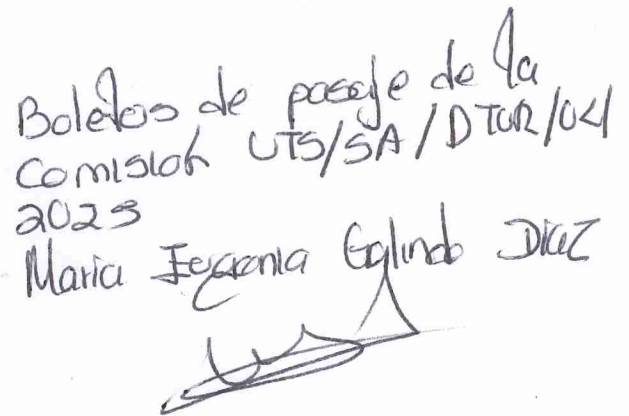 Boletos de pasaje de la
Comisión UTS/SA/DTUR/04/
2023
Maria Eugenia Galindo Diaz